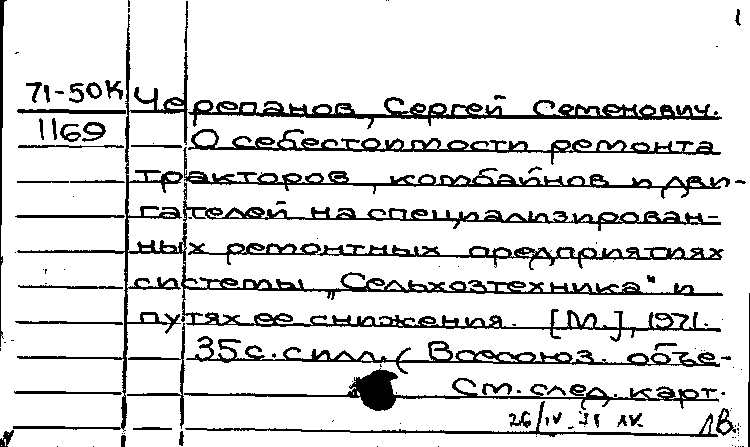 1
71-50К Черепанов, Сергей Семенович.
1169 О себестоимости ремонта
тракторов, комбайнов и дви-
гателей на специализирован-
ных ремонтных предприятиях
системы „Сельхозтехника" и
путях ее снижения. [М.], 1971.
35 с. с илл. (Всесоюз. объе-
См. след. карт.
26/IV-71 ЛВ